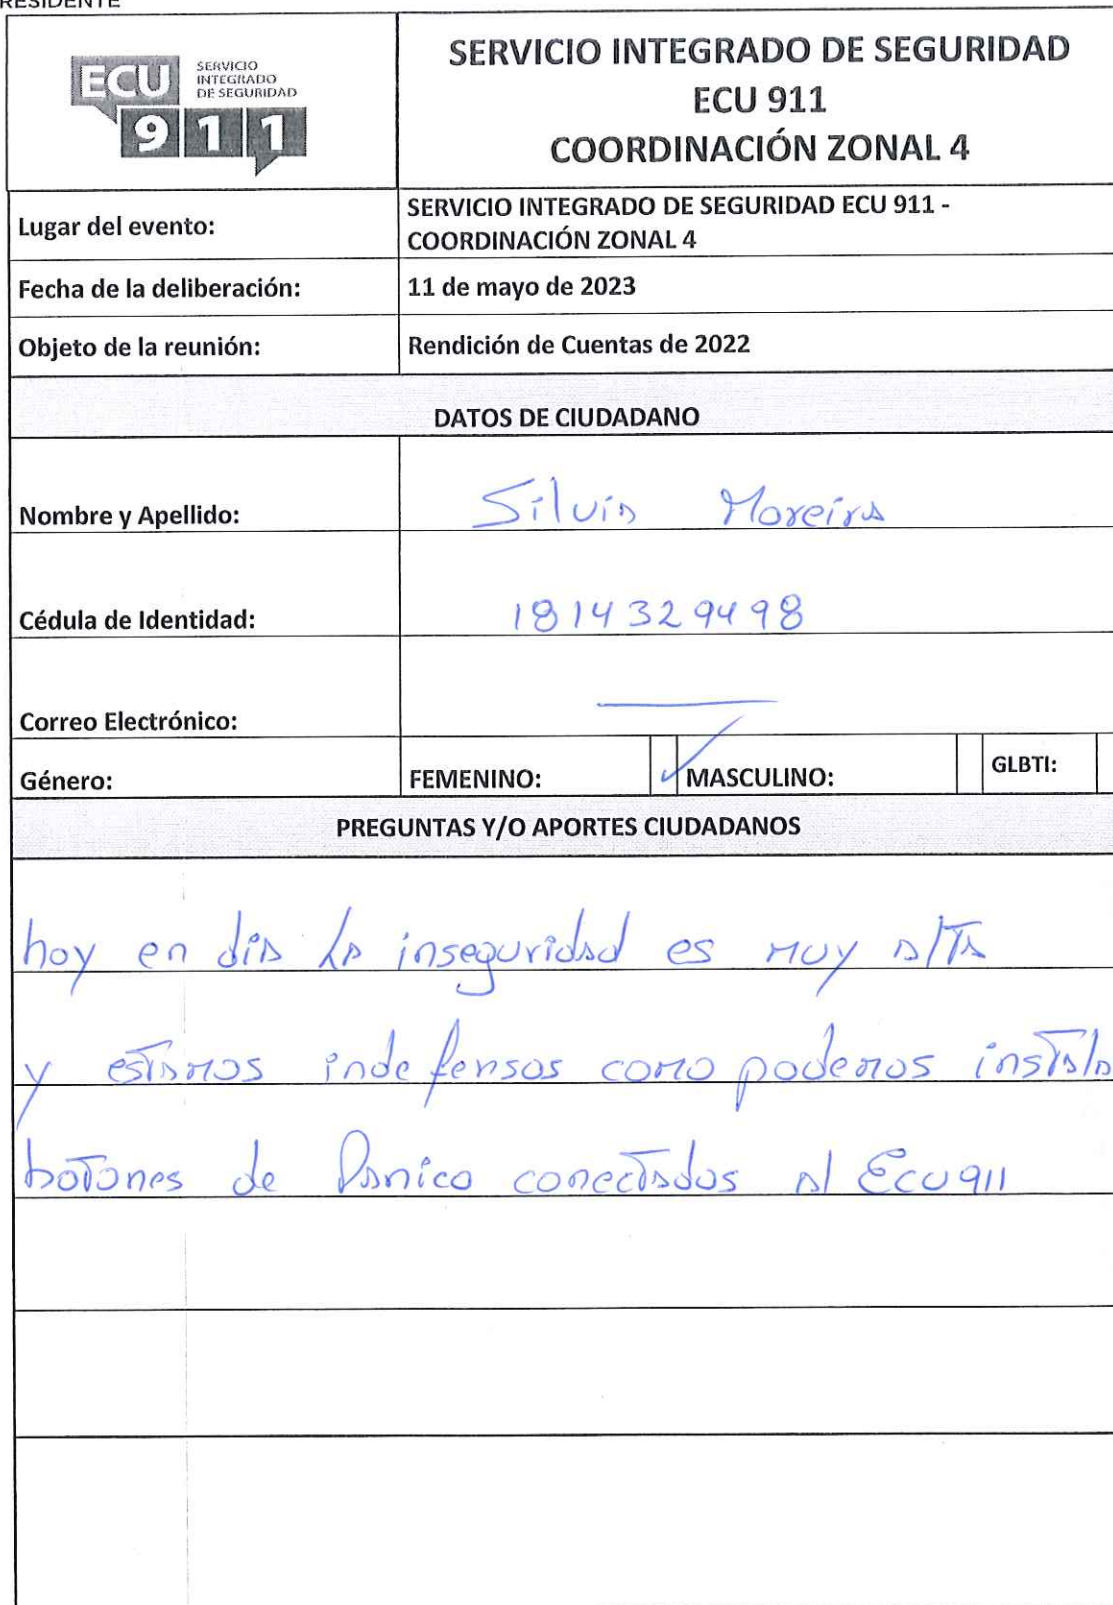 RESIDENTE
ECU
911
SERVICIO
INTEGRADO
DE SEGURIDAD
SERVICIO INTEGRADO DE SEGURIDAD
ECU 911
COORDINACIÓN ZONAL 4
Lugar del evento:
SERVICIO INTEGRADO DE SEGURIDAD ECU 911 -
COORDINACIÓN ZONAL 4
Fecha de la deliberación:
11 de mayo de 2023
Objeto de la reunión:
Rendición de Cuentas de 2022
DATOS DE CIUDADANO
Nombre y Apellido:
Silvia Moreira
Cédula de Identidad:
1814329498
Correo Electrónico:
Género:
FEMENINO:
MASCULINO:
GLBTI:
PREGUNTAS Y/O APORTES CIUDADANOS
hoy en dia la inseguridad es muy alta
y estamos indefensos como podemos instala
botones de Panico conectados al Ecu911